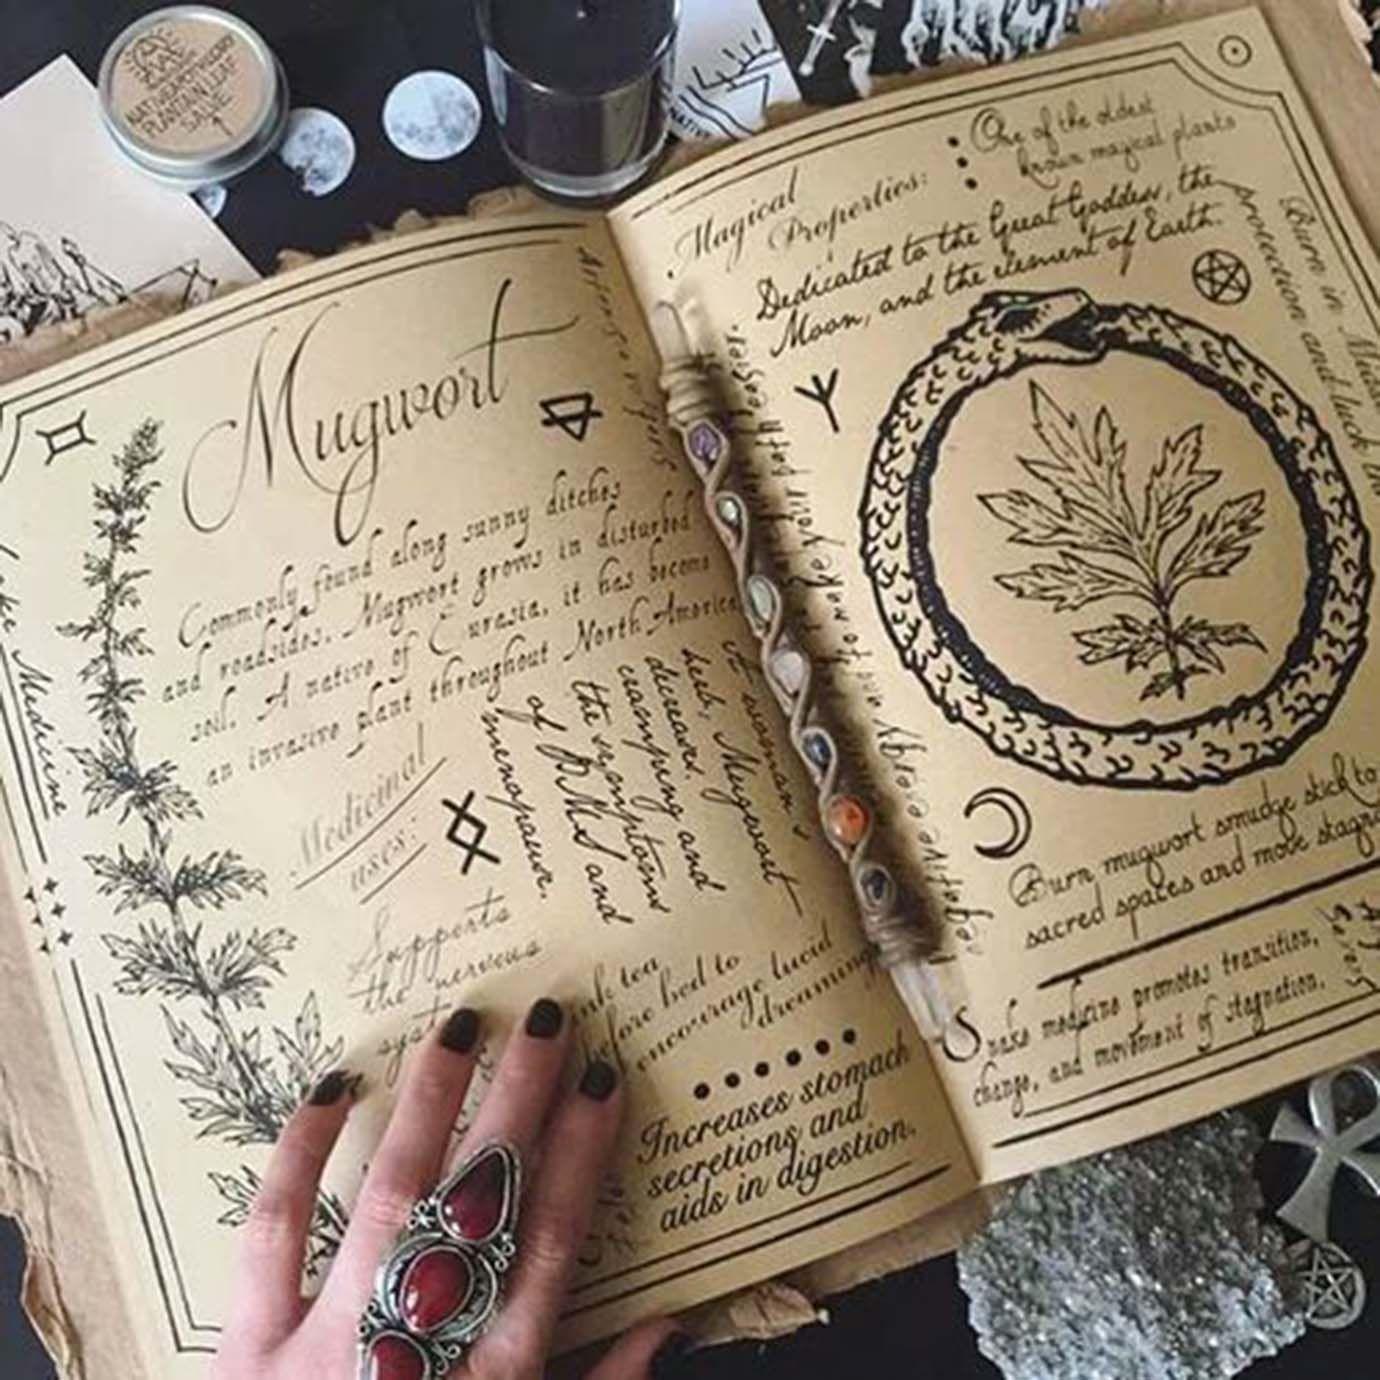 NATIVEAPOTHECARY
PLANTAIN LEAF
SALVE
Mugwort
Commonly found along sunny ditches
and roadsides. Mugwort grows in disturbed
soil. A native of Eurasia, it has become
an invasive plant throughout North America
Medicine
Medicinal
uses:
Supports
the nervous
A woman's
herb, Mugwort
decreases
cramping and
the symptoms
of PMS and
menopause.
tea
before bed to
encourage lucid
dreaming
Increases stomach
secretions and
aids in digestion.
Magical
Properties:
One of the oldest
known magical plants
Dedicated to the Great Goddess, the
Moon, and the element of Earth.
Burn in
protection and luck
negative energy and to make your path
Burn mugwort smudge stick to
sacred spaces and move
Snake medicine promotes transition,
change, and movement of stagnation.